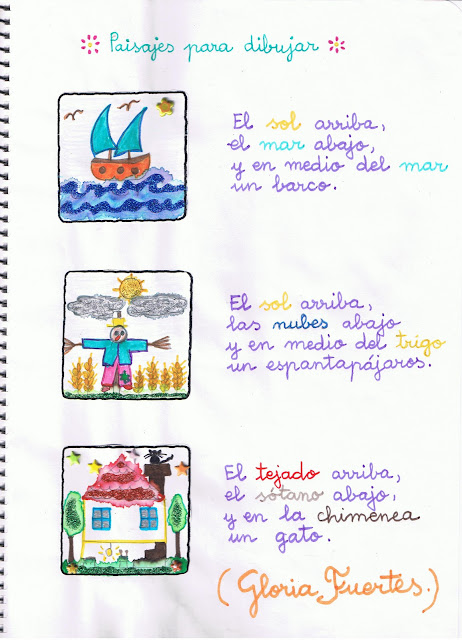 Paisajes para dibujar
El sol arriba,
el mar abajo,
y en medio del mar
un barco.
El sol arriba,
las nubes abajo
y en medio del trigo
un espantapájaros.
El tejado arriba,
el sótano abajo,
y en la chimenea
un gato.
(Gloria Fuertes.)